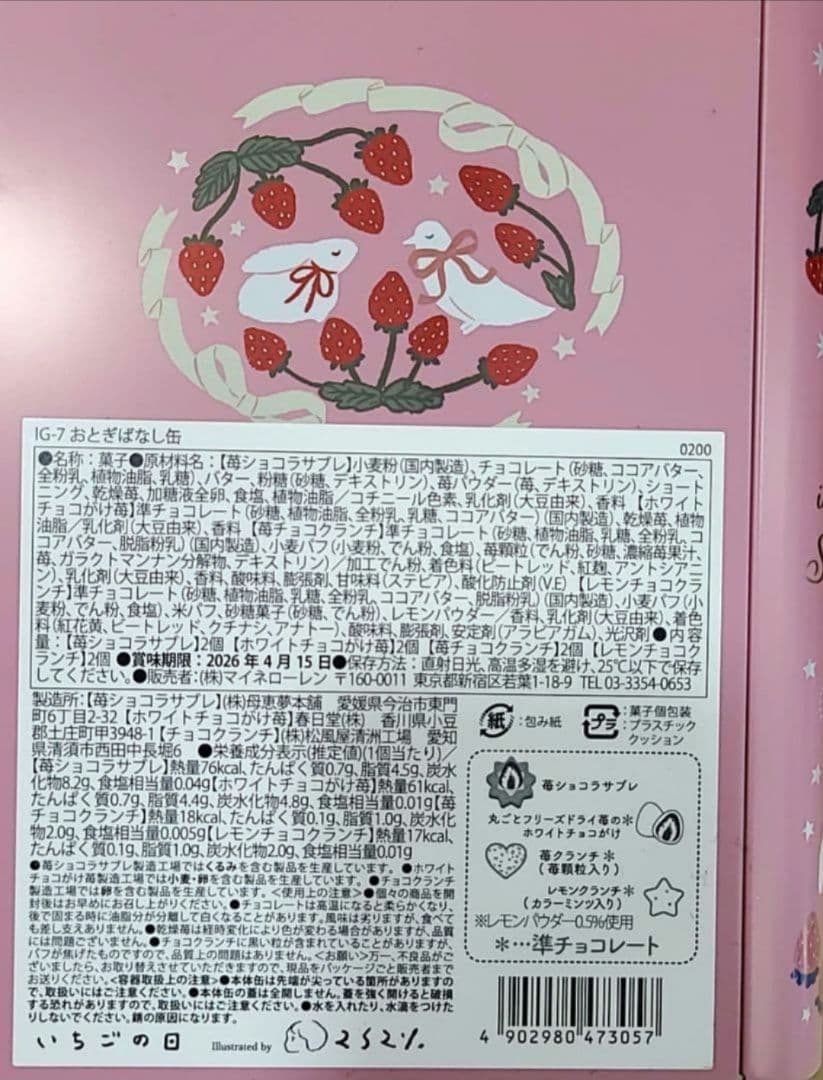 IG-7 おとぎばなし缶
0200
●名称：菓子●原材料名：【苺ショコラサブレ】小麦粉（国内製造）、チョコレート（砂糖、ココアバター、
全粉乳、植物油脂、乳糖）、バター、粉糖（砂糖、デキストリン）、苺パウダー（苺、デキストリン）、ショート
ニング、乾燥苺、加糖液全卵、食塩、植物油脂／コチニール色素、乳化剤（大豆由来）、香料 【ホワイト
チョコがけ苺】準チョコレート（砂糖、植物油脂、全粉乳、乳糖、ココアバター）（国内製造）、乾燥苺、植物
油脂／乳化剤（大豆由来）、香料 【苺チョコクランチ】準チョコレート（砂糖、植物油脂、乳糖、全粉乳、コ
コアバター、脱脂粉乳）（国内製造）、小麦パフ（小麦粉、でん粉、食塩）、苺顆粒（でん粉、砂糖、濃縮苺果汁、
苺、ガラクトマンナン分解物、デキストリン）／加工でん粉、着色料（ビートレッド、紅麹、アントシアニ
ン）、乳化剤（大豆由来）、香料、酸味料、膨張剤、甘味料（ステビア）、酸化防止剤（V.E） 【レモンチョコク
ランチ】準チョコレート（砂糖、植物油脂、乳糖、全粉乳、ココアバター、脱脂粉乳）（国内製造）、小麦パフ（小
麦粉、でん粉、食塩）、米パフ、砂糖菓子（砂糖、でん粉）、レモンパウダー／香料、乳化剤（大豆由来）、着色
料（紅花黄、ビートレッド、クチナシ、アナトー）、酸味料、膨張剤、安定剤（アラビアガム）、光沢剤●内容
量：【苺ショコラサブレ】2個 【ホワイトチョコがけ苺】2個 【苺チョコクランチ】2個 【レモンチョコク
ランチ】2個 ●賞味期限：2026年4月15日●保存方法：直射日光、高温多湿を避け、25℃以下で保存
してください。●販売者：（株）マイネローレン 〒160-0011 東京都新宿区若葉1-18-9 TEL 03-3354-0653
製造所：【苺ショコラサブレ】（株）母恵夢本舗 愛媛県今治市東門
町6丁目2-32 【ホワイトチョコがけ苺】春日堂（株） 香川県小豆
郡土庄町甲3948-1【チョコクランチ】（株）松風屋清洲工場 愛知
県清須市西田中長堀6 ●栄養成分表示（推定値）（1個当たり）／
【苺ショコラサブレ】熱量76kcal、たんぱく質0.7g、脂質4.5g、炭水
化物8.2g、食塩相当量0.04g【ホワイトチョコがけ苺】熱量61kcal、
たんぱく質0.7g、脂質4.4g、炭水化物4.8g、食塩相当量0.01g【苺
チョコクランチ】熱量18kcal、たんぱく質0.1g、脂質1.0g、炭水化
物2.0g、食塩相当量0.005g【レモンチョコクランチ】熱量17kcal、
たんぱく質0.1g、脂質1.0g、炭水化物2.0g、食塩相当量0.01g
●苺ショコラサブレ製造工場ではくるみを含む製品を生産しています。●ホワイト
チョコがけ苺製造工場では小麦・卵を含む製品を生産しています。●チョコクランチ
製造工場では卵を含む製品を生産しています。＜使用上の注意＞●個々の商品を開
封後はお早めにお召し上がりください。●チョコレートは高温になると柔らかくなり、
後で固まる時に油脂分が分離して白くなることがあります。風味は劣りますが、食べて
も差し支えありません。●乾燥苺は経時変化により色が変わる場合がありますが、品質
には問題ございません。●チョコクランチに黒い粒が含まれていることがありますが、
パフが焦げたものですので、品質上の問題はありません。＜お願い＞万一、不良品がご
ざいましたら、お取り替えさせていただきますので、現品をパッケージごと販売者まで
お送りください。＜容器取扱上の注意＞●本体缶は先端が尖っている箇所がありますの
で、取扱いにはご注意ください。●本体缶の蓋は全開しません。蓋を強く開けると破損
する恐れがありますので、取扱いにはご注意ください。●水を入れたり、水滴をつけた
りしないでください。錆の原因になります。
紙：包み紙
プラ：菓子個包装
プラスチック
クッション
苺ショコラサブレ
丸ごとフリーズドライ苺の＊
ホワイトチョコがけ
苺クランチ＊
（苺顆粒入り）
レモンクランチ＊
（カラーミンツ入り）
※レモンパウダー0.5%使用
＊…準チョコレート
いちごの日
Illustrated by
4 902980 473057